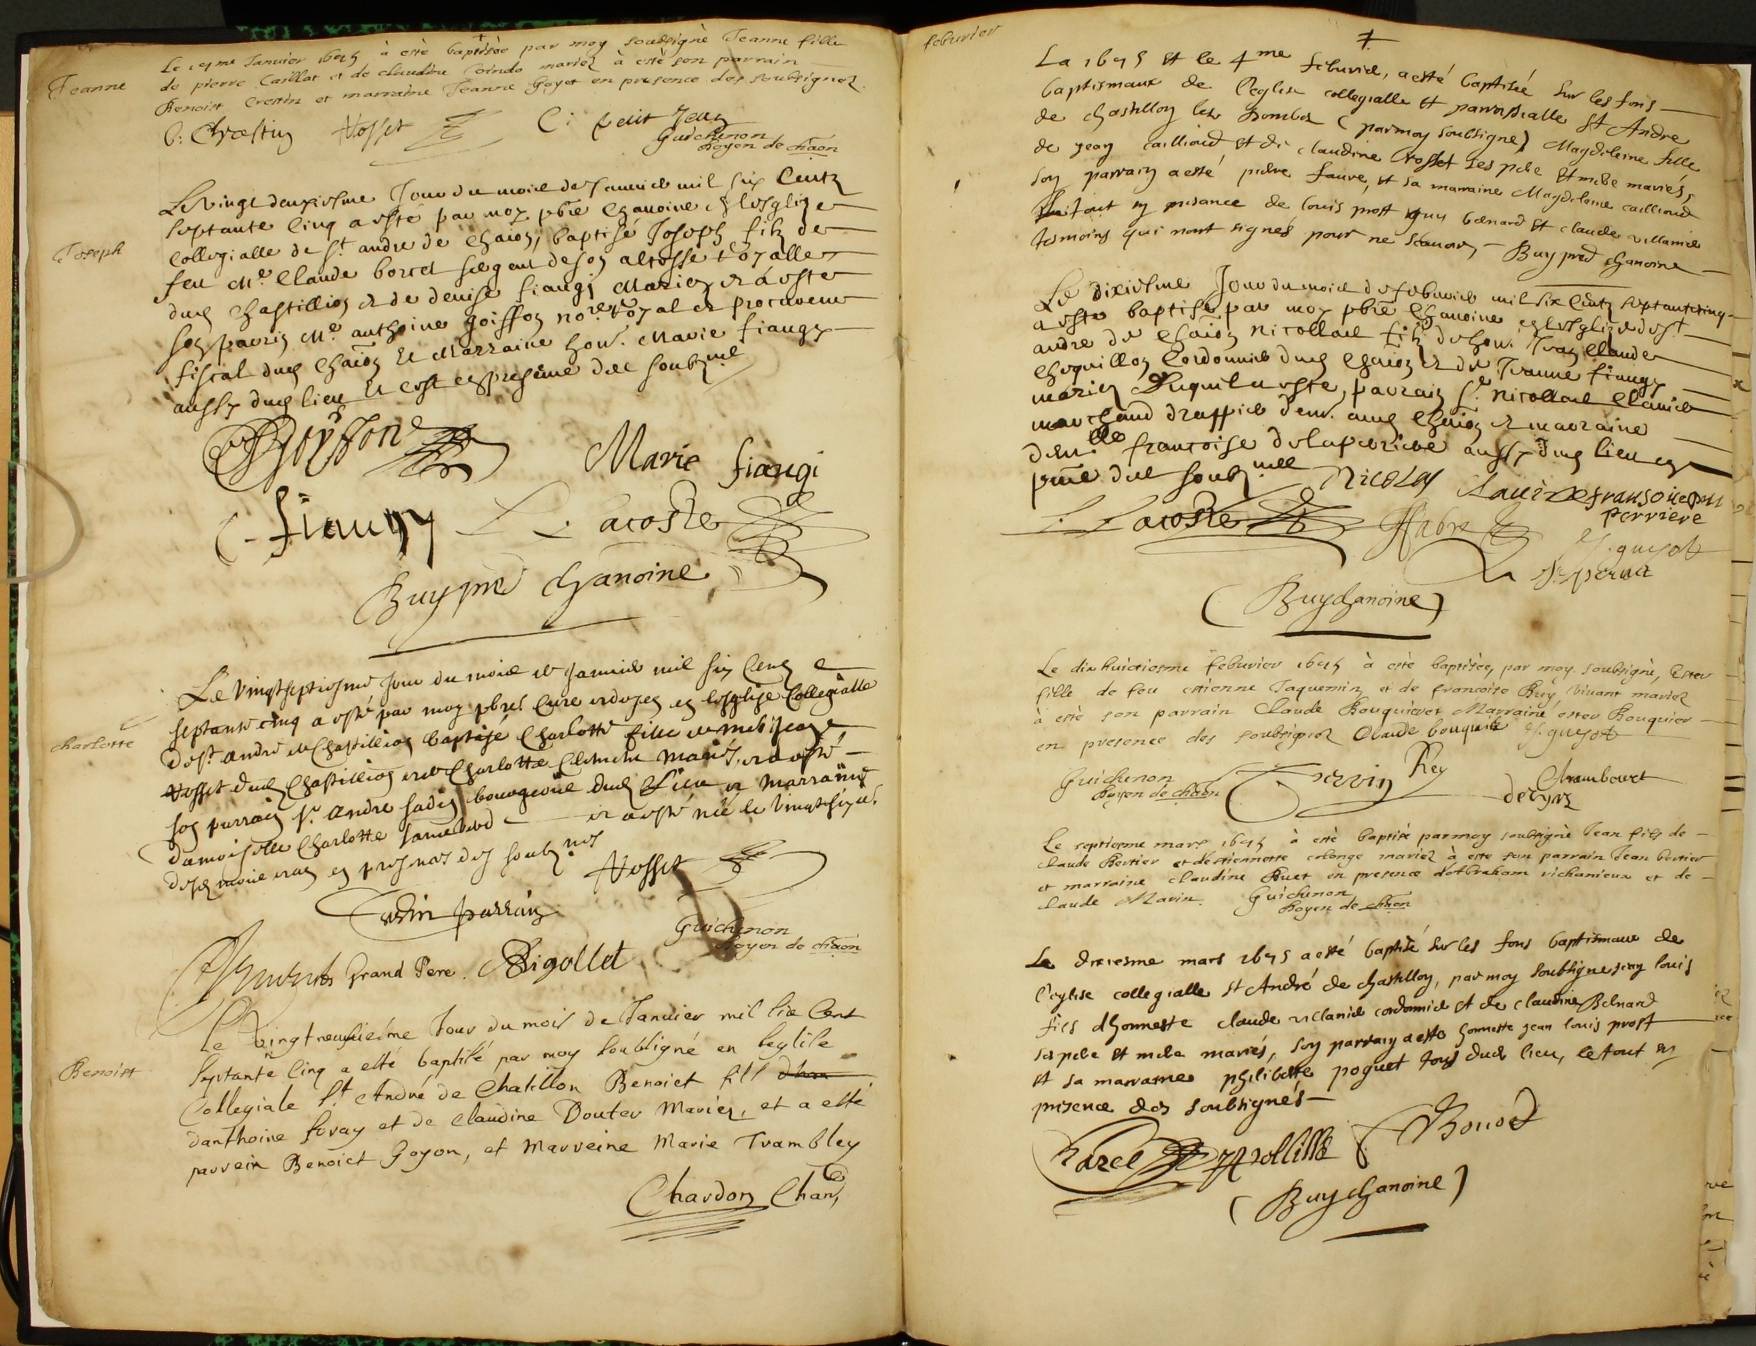 Jeanne
Le 14me Janvier 1675 à esté baptisée par moy soubsigné Jeanne fille
de pierre Caillat et de claudine Coindo mariez à esté son parrain
Benoist Crestin et marraine Jeanne Goyet en presence des soubsignez
b: Chrestin Vosset C: petit Jean
Guichenon
doyen de chaōn
Joseph
Le vingt deuxiesme Jour du mois de Janvier mil six Centz
septante cinq a esté par moy pbre chanoine en lesglize
Collegialle de st andre de chaōn, baptisé Joseph filz de
feu Me Claude borcet sergent de son altesse royalle
dud Chastillion et de denise fiangi Mariez et a esté
son parrin Me anthoine goiffon nore royal et procureur
fiscal dud Chaōn et Marraine hon. Marie fiangy
aussy dud lieu et cest en presence des soubznés
Goiffon
Marie fiangi
C. fiangy L. Lacoste
Buy pbre chanoine
charlotte
Le vingtseptiesme Jour du mois de Janvier mil six Cens
septante cinq a esté par moy pbre Cure et doyen en lesglize Collegialle
de st andre de Chastillion baptisé Charlotte fille de
Vosset dud Chastillion et de Charlotte Mariés, et a esté
son parrain sr andre sadin bourgeois dud Lieu et Marraine
damoiselle Charlotte et a esté née le vingtsix
desd mois et an en presence des soubznés
Vosset
sadin parrain
Guichenon
doyen de chaōn
Grand Pere. Rigollet
Benoist
Le vingt neufuieme Jour du mois de Janvier mil six Cent
septante cinq a esté baptisé par moy soubsigné en leglise
Collegiale st André de Chatillon Benoict fils
danthoine foray et de Claudine Douter Mariez, et a esté
parrein Benoict Goyon, et Marreine Marie Trambley
Chardon Chane
febuvrier
La 1675 et le 4me febuvrié, a esté baptisée sur les fons
baptismaux de l'eglise collegialle et parroissialle st Andre
de chastillon les Dombes (par moy soubsigné) Magdeleine fille
de jean cailliaud et de claudine Vosset ses pere et mere mariés,
son parrain a esté piere faure, et sa marraine Magdeleine cailliaud
le tout en presance de louis prost guy benard et claude villanié
tesmoins qui nont signés pour ne scavoir Buy pred chanoine
Le dixiesme Jour du mois de febuvrier mil six Centz septantecinq
a esté baptisé par moy pbre chanoine en lesglize de st
andre de Chaōn nicollas filz de hon. Jean Claude
choquillon Cordonnier dud chaōn et de Jeanne fiangy
mariez Duquel a esté parrain sr nicollas
marchand drappier dem. aud chaōn et marraine
demlle francoise delaperriere aussy dud lieu en
pnce des soubznés nicolas fransoise de la
perriere
L. Lacoste Fabre J. guyot
(Buy chanoine)
Le dix huictiesme febuvrier 1675 à esté baptisée, par moy soubsigné, Ester
fille de feu estienne Jaquemin et de francoise Buy, vivant mariez
à esté son parrain Claude Bouquier et Marraine ester Bouquier
en presence des soubsignez Claude bouquier J. guyot
Guichenon
doyen de chaōn
Pervin Rey Chambouet
Le septiesme mars 1675 à esté baptisé par moy soubsigné Jean fils de
claude Bertier et destiennette colonge mariez à esté son parrain Jean bertier
et marraine claudine Buet en presence d'Abraham vichanieux et de
claude Marin. Guichenon
doyen de chaōn
Le dixiesme mars 1675 a esté baptisé sur les fons baptismaux de
l'eglise collegialle st André de chastillon, par moy soubsigné jean louis
fils dhonneste claude villanié cordonnié et de claudine Benard
ses pere et mere mariés, son parrain a esté honneste jean louis prost
et sa marraine philiberte poquet tous dud lieu, le tout en
presence des soubsignés
Karcel Bonod
(Buy chanoine)